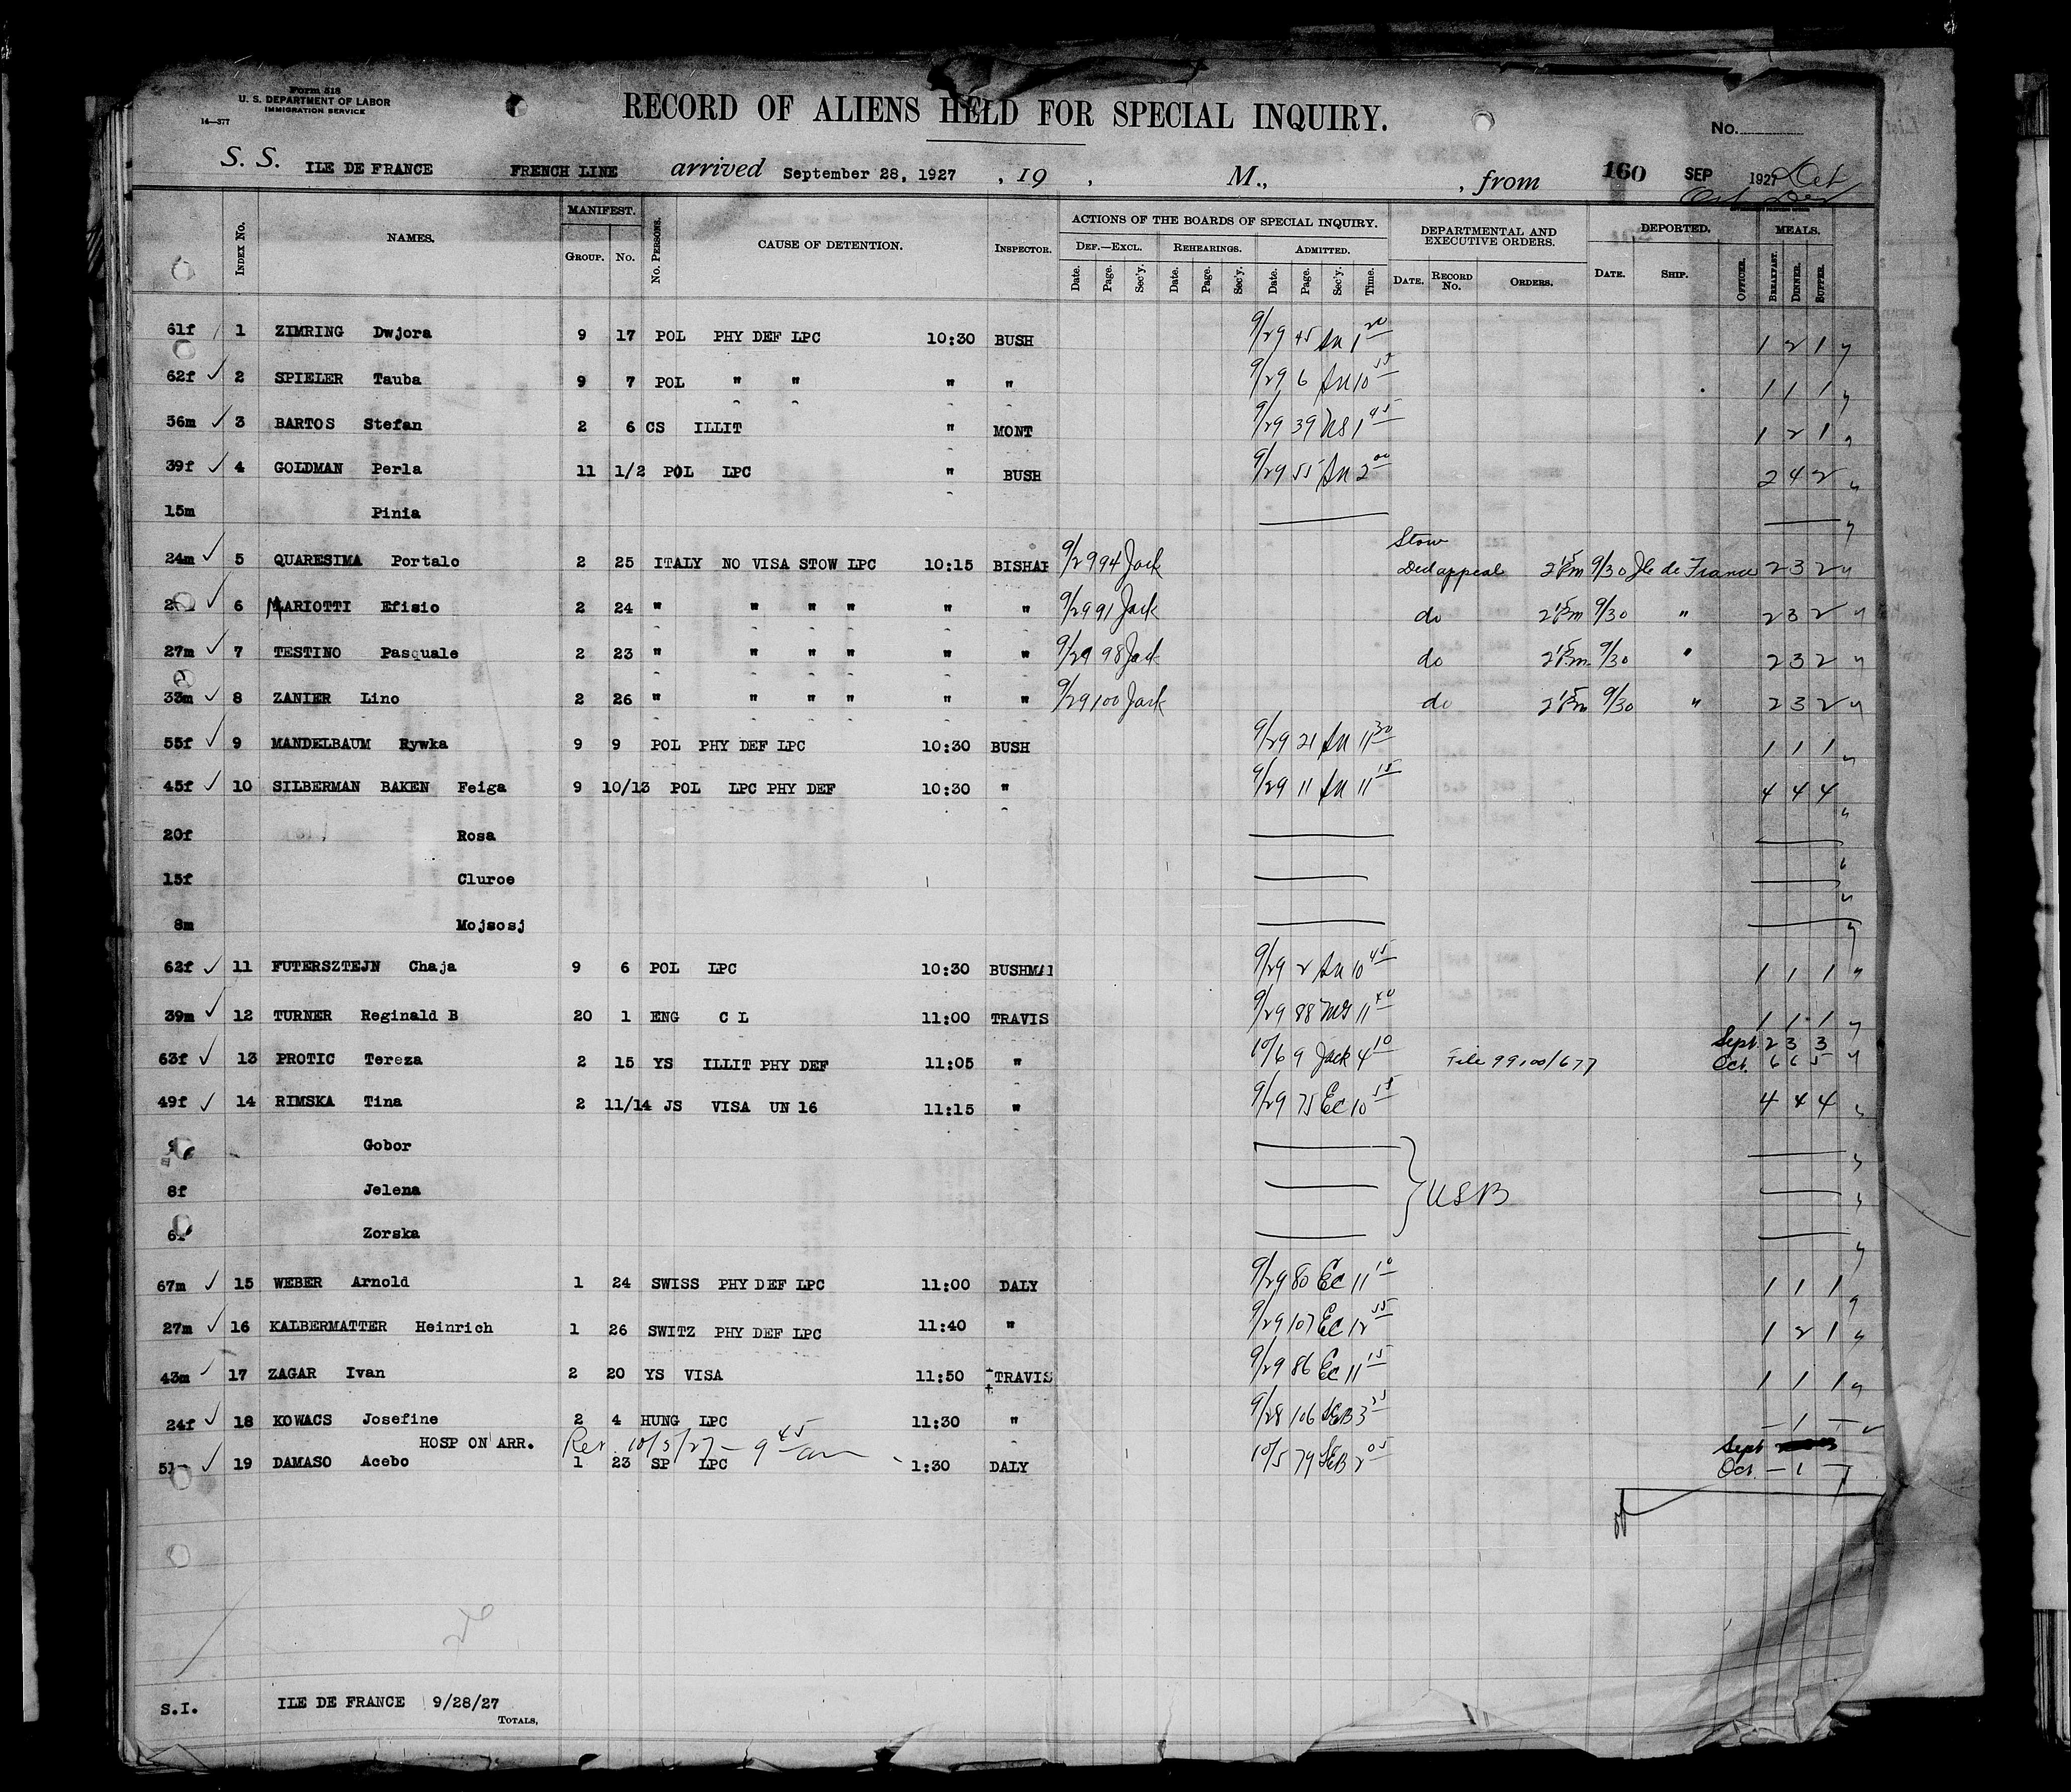 Form 518
U. S. DEPARTMENT OF LABOR
IMMIGRATION SERVICE
14—377
RECORD OF ALIENS HELD FOR SPECIAL INQUIRY.
No.
S. S. ILE DE FRANCE FRENCH LINE arrived September 28, 1927 , 19 , M., , from 160 SEP 1927 Oct
INDEX No. NAMES. MANIFEST. GROUP. No. No. PERSONS. CAUSE OF DETENTION. INSPECTOR. ACTIONS OF THE BOARDS OF SPECIAL INQUIRY. DEPARTMENTAL AND EXECUTIVE ORDERS. DEPORTED. MEALS.
DEF.—EXCL. REHEARINGS. ADMITTED.
Date. Page. Sec'y. Date. Page. Sec'y. Date. Page. Sec'y. Time. DATE. RECORD No. ORDERS. DATE. SHIP. OFFICER. BREAKFAST. DINNER. SUPPER.
61f 1 ZIMRING Dwjora 9 17 POL PHY DEF LPC 10:30 BUSH 9/29 45 1 20 1 2 1
62f ✓ 2 SPIELER Tauba 9 7 POL " " " " 9/29 6 10 55 1 1 1
56m ✓ 3 BARTOS Stefan 2 6 CS ILLIT " MONT 9/29 39 1 45 1 2 1
39f ✓ 4 GOLDMAN Perla 11 1/2 POL LPC " BUSH 9/29 55 2 00 2 4 2
15m Pinia
Stow
24m ✓ 5 QUARESIMA Portalo 2 25 ITALY NO VISA STOW LPC 10:15 BISHAP 9/29 94 Jack Decl appeal 2 15 Pm 9/30 Ile de France 2 3 2
✓ 6 MARIOTTI Efisio 2 24 " " " " " " 9/29 91 Jack do 2 15 Pm 9/30 " 2 3 2
27m ✓ 7 TESTINO Pasquale 2 23 " " " " " " 9/29 98 Jack do 2 15 Pm 9/30 " 2 3 2
33m ✓ 8 ZANIER Lino 2 26 " " " " " " 9/29 100 Jack do 2 15 Pm 9/30 " 2 3 2
55f ✓ 9 MANDELBAUM Rywka 9 9 POL PHY DEF LPC 10:30 BUSH 9/29 21 11 30 1 1 1
45f ✓ 10 SILBERMAN BAKEN Feiga 9 10/13 POL LPC PHY DEF 10:30 " 9/29 11 11 15 4 4 4
20f Rosa
15f Cluroe
8m Mojsosj
62f ✓ 11 FUTERSZTEJN Chaja 9 6 POL LPC 10:30 BUSHMAN 9/29 2 10 45 1 1 1
39m ✓ 12 TURNER Reginald B 20 1 ENG C L 11:00 TRAVIS 9/29 88 11 40 1 1 1
Sept. 2 3 3
63f ✓ 13 PROTIC Tereza 2 15 YS ILLIT PHY DEF 11:05 " 10/6 9 Jack 4 10 File 99100/677 Oct. 6 6 5
49f ✓ 14 RIMSKA Tina 2 11/14 JS VISA UN 16 11:15 " 9/29 75 EC 10 55 4 4 4
Gobor
8f Jelena USB
6f Zorska
67m ✓ 15 WEBER Arnold 1 24 SWISS PHY DEF LPC 11:00 DALY 9/29 80 EC 11 10 1 1 1
27m ✓ 16 KALBERMATTER Heinrich 1 26 SWITZ PHY DEF LPC 11:40 " 9/29 107 EC 12 55 1 2 1
43m ✓ 17 ZAGAR Ivan 2 20 YS VISA 11:50 TRAVIS 9/29 86 EC 11 15 1 1 1
24f ✓ 18 KOWACS Josefine 2 4 HUNG LPC 11:30 " 9/28 106 SEB 3 35 — 1 —
HOSP ON ARR. Rer. 10/5/27 — 9 45 am Sept
51m ✓ 19 DAMASO Acebo 1 23 SP LPC 1:30 DALY 10/5 79 SEB 2 05 Oct. — 1 —
26
S.I. ILE DE FRANCE 9/28/27
TOTALS,